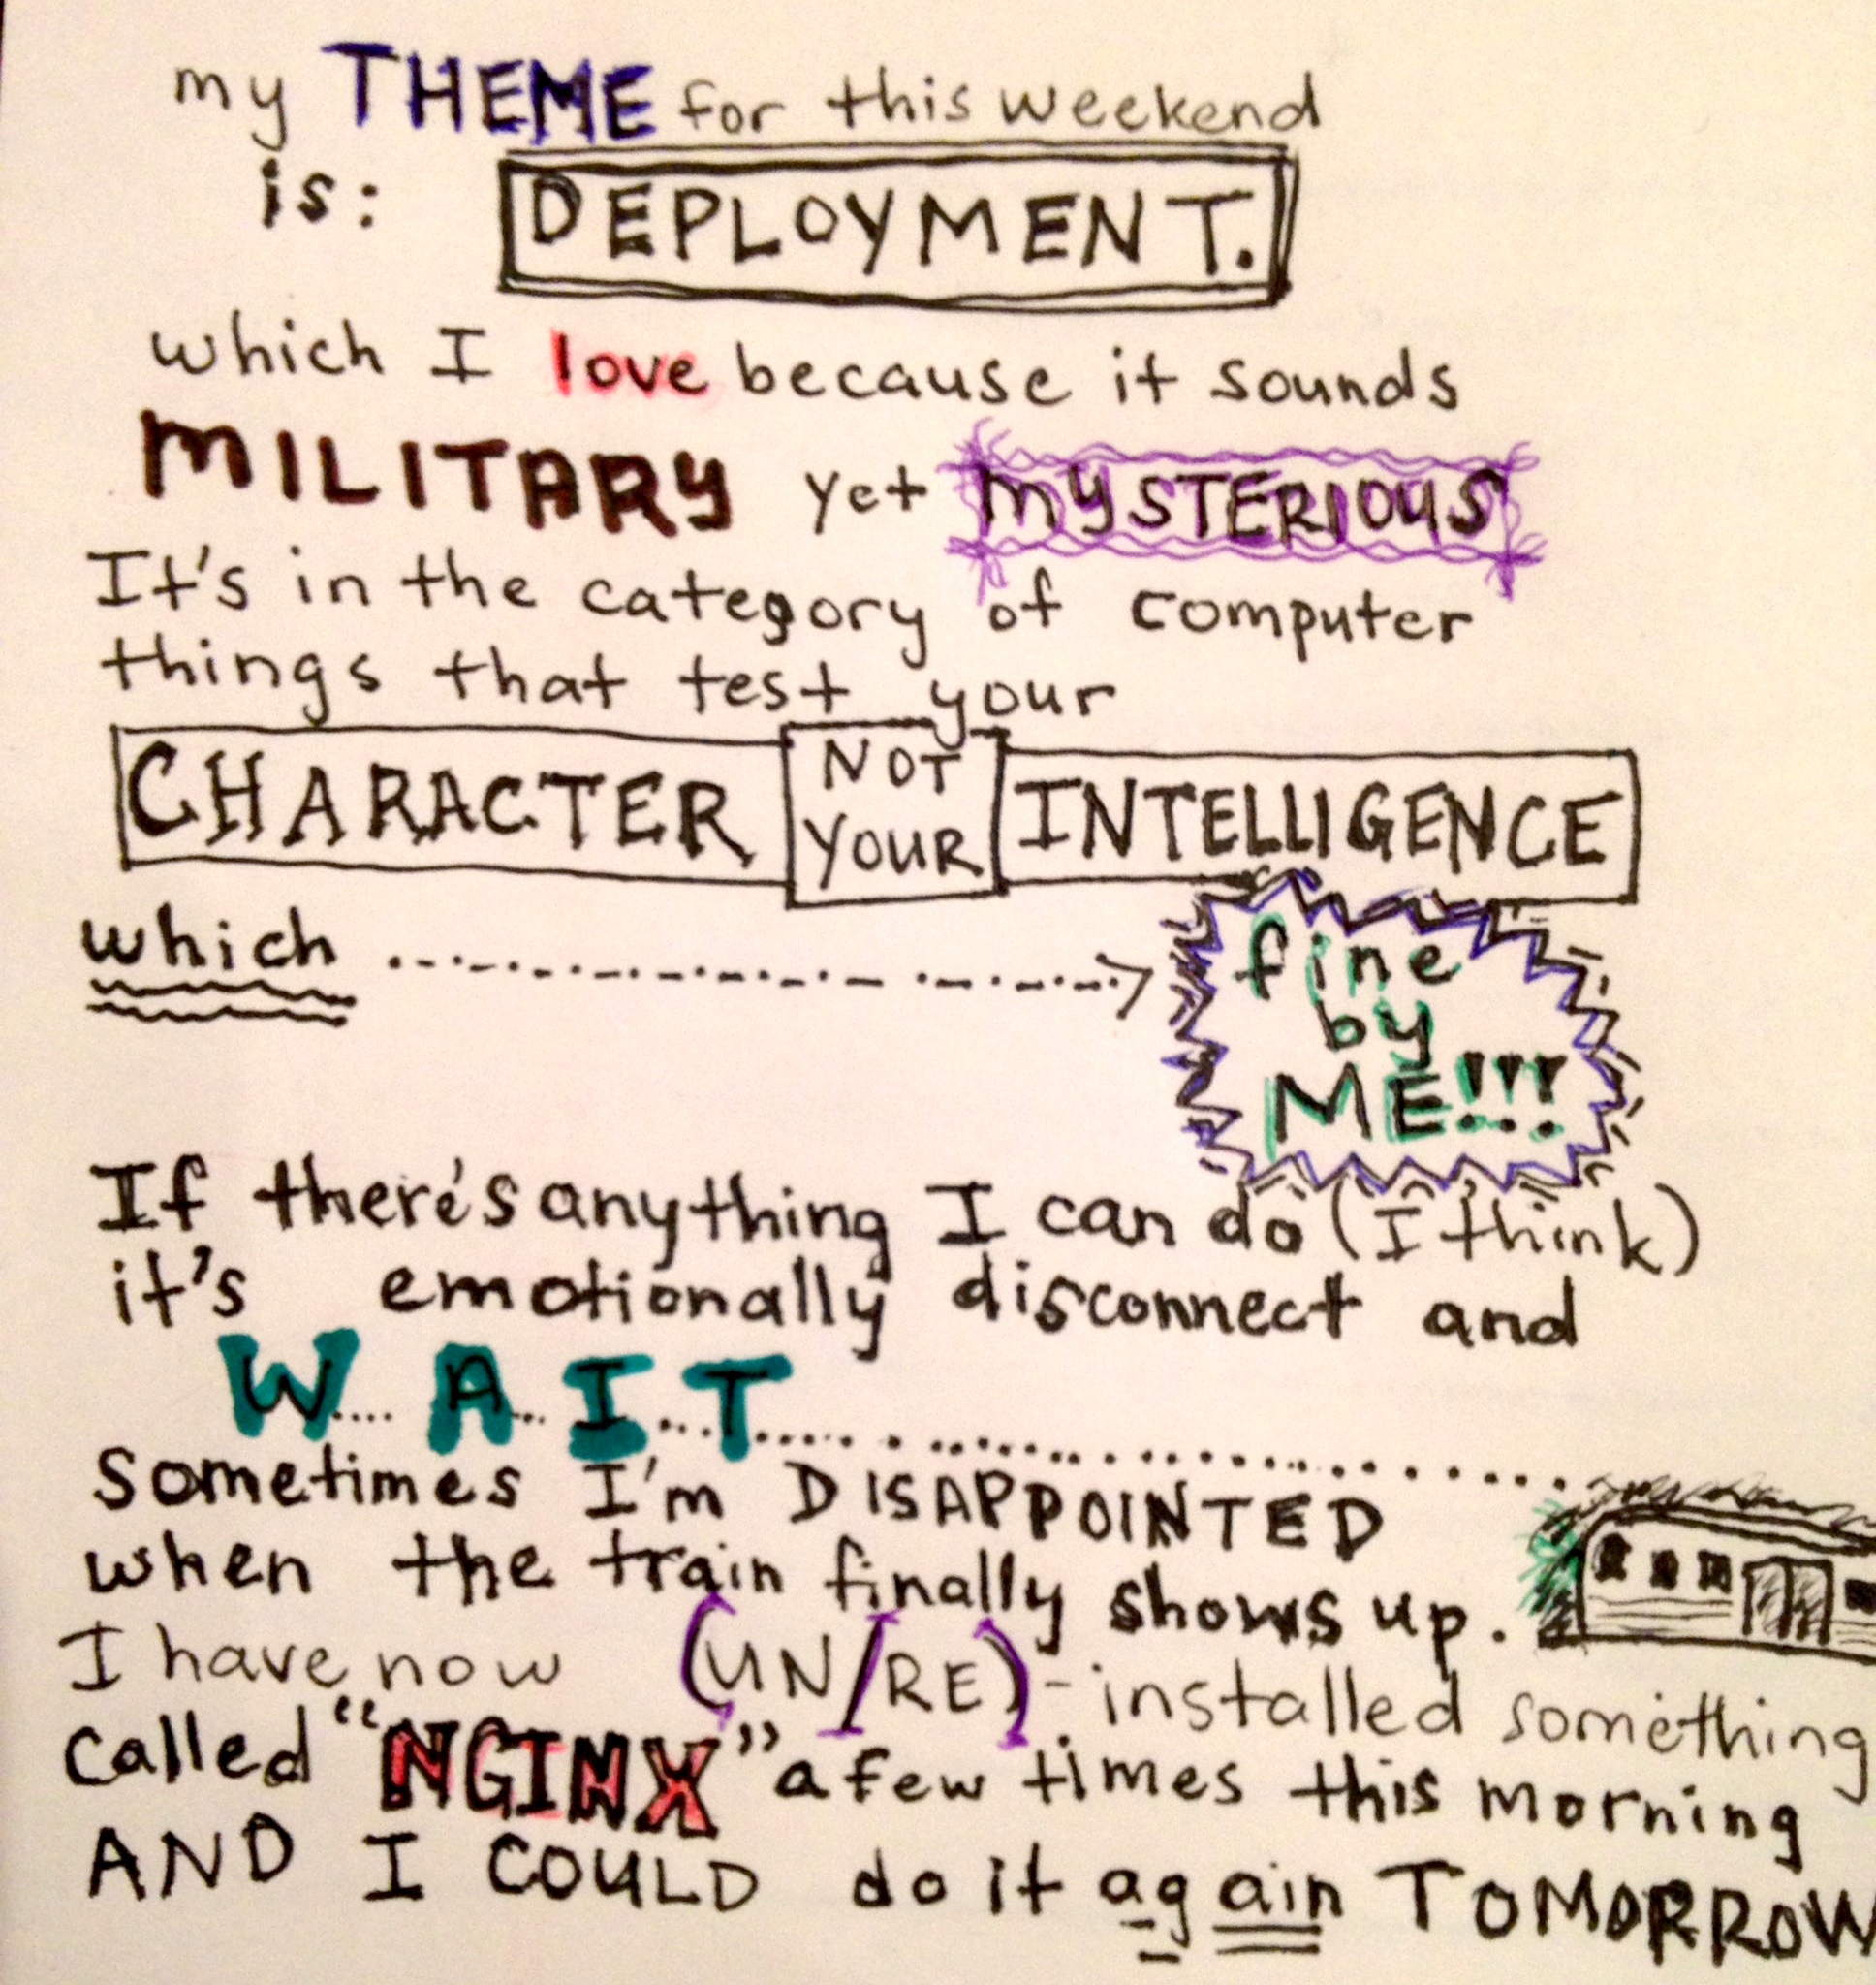 my THEME for this weekend
is: DEPLOYMENT.
which I love because it sounds
MILITARY yet MYSTERIOUS
It's in the category of computer
things that test your
CHARACTER NOT YOUR INTELLIGENCE
which
fine
by
ME!!!
If there's anything I can do (I think)
it's emotionally disconnect and
W.... A... I.... T..................
Sometimes I'm DISAPPOINTED
when the train finally shows up.
I have now (UN/RE)-installed something
called "NGINX" a few times this morning
AND I COULD do it again TOMORROW